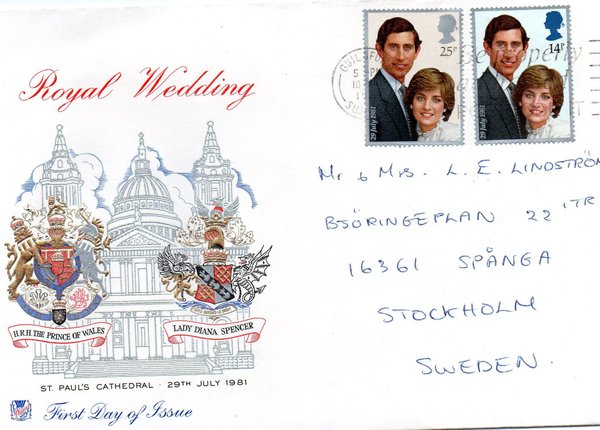 Royal Wedding
H.R.H. THE PRINCE OF WALES
LADY DIANA SPENCER
ST. PAUL'S CATHEDRAL · 29TH JULY 1981
First Day of Issue
25P
29 July 1981
14P
29 July 1981
Mr & Mrs. L. E. LINDSTRÖM
BJÖRINGEPLAN 22 ITR
16361 SPÅNGA
STOCKHOLM
SWEDEN.